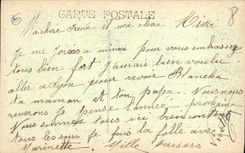 8
CARTE POSTALE
Ma chère Irène et ma chère Mimi
Je me joins à mimi pour vous embrasser
tous bien fort. J'aurais bien voulu
aller à Lyon pour revoir Blanche
ta maman et ton papa. Nous vous
reverrons je pense l'année prochaine
Nous sommes tous ici bien contents
tous les jours je fais la folle avec
Marinette. Mille baisers